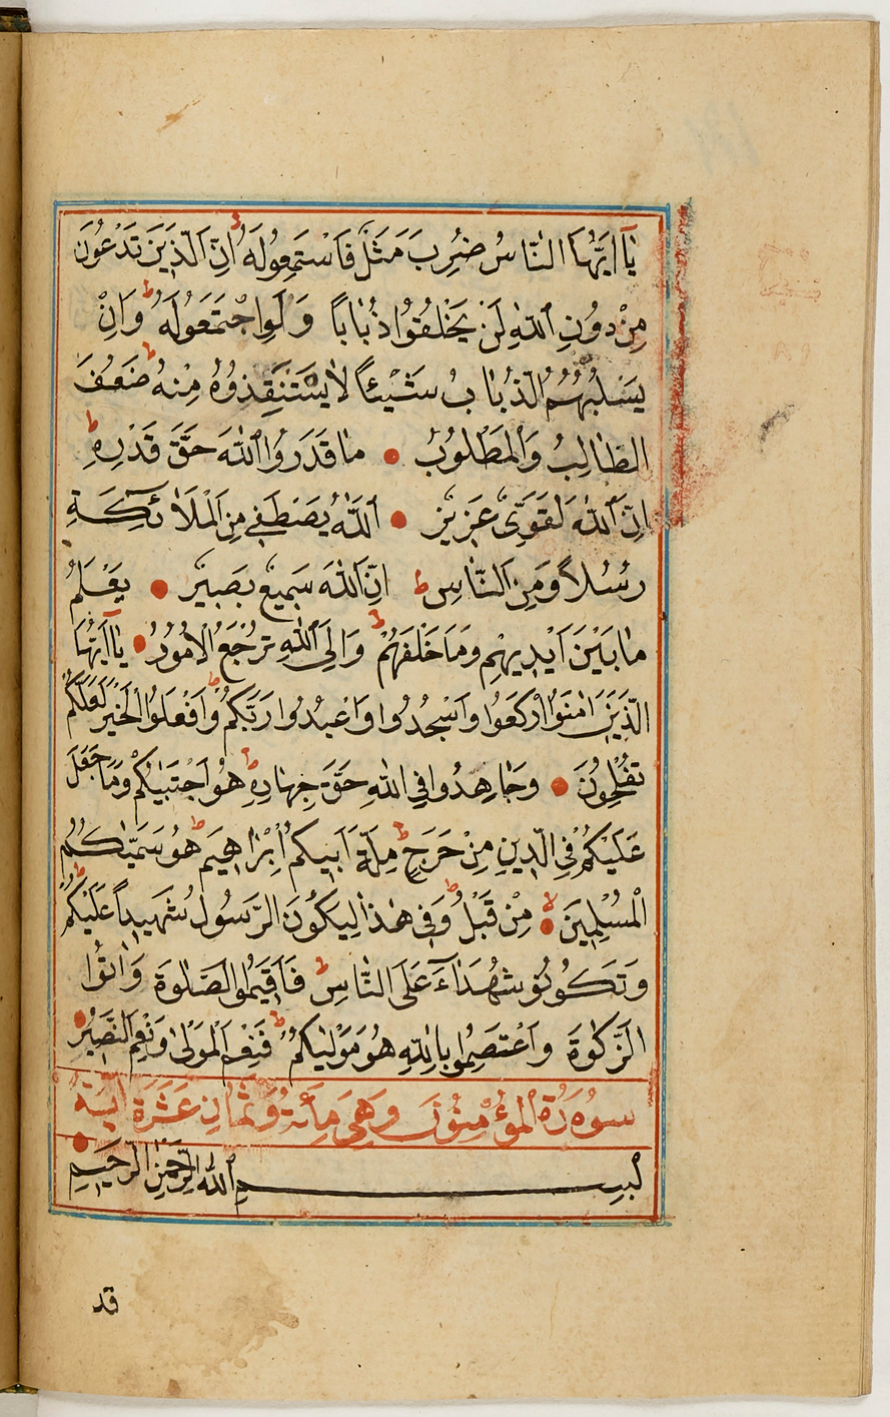 يَآ اَيُّهَا النَّاسُ ضُرِبَ مَثَلٌ فَاسْتَمِعُوا لَهُ ط اِنَّ الَّذِينَ تَدْعُونَ
مِنْ دُونِ اللّٰهِ لَنْ يَخْلُقُوا ذُبَاباً وَلَوِ اجْتَمَعُوا لَهُ ط وَاِنْ
يَسْلُبْهُمُ الذُّبَابُ شَيْئاً لَا يَسْتَنْقِذُوهُ مِنْهُ ط ضَعُفَ
الطَّالِبُ وَالْمَطْلُوبُ ● مَا قَدَرُوا اللّٰهَ حَقَّ قَدْرِهِ ط
اِنَّ اللّٰهَ لَقَوِىٌّ عَزِيزٌ ● اَللّٰهُ يَصْطَفِي مِنَ الْمَلَائِكَةِ
رُسُلاً وَمِنَ النَّاسِ ط اِنَّ اللّٰهَ سَمِيعٌ بَصِيرٌ ● يَعْلَمُ
مَا بَيْنَ اَيْدِيهِمْ وَمَا خَلْفَهُمْ ط وَاِلَى اللّٰهِ تُرْجَعُ الْاُمُورُ ● يَآ اَيُّهَا
الَّذِينَ اٰمَنُوا ارْكَعُوا وَاسْجُدُوا وَاعْبُدُوا رَبَّكُمْ ط وَافْعَلُوا الْخَيْرَ لَعَلَّكُمْ
تُفْلِحُونَ ● وَجَاهِدُوا فِي اللّٰهِ حَقَّ جِهَادِهِ ط هُوَ اجْتَبٰيكُمْ وَمَا جَعَلَ
عَلَيْكُمْ فِي الدِّينِ مِنْ حَرَجٍ ط مِلَّةَ اَبِيكُمْ اِبْرَاهِيمَ ط هُوَ سَمّٰيكُمُ
الْمُسْلِمِينَ لا مِنْ قَبْلُ ط وَفِي هٰذَا لِيَكُونَ الرَّسُولُ شَهِيداً عَلَيْكُمْ ط
وَتَكُونُوا شُهَدَآءَ عَلَى النَّاسِ ط فَاَقِيمُوا الصَّلٰوةَ وَاٰتُوا
الزَّكٰوةَ وَاعْتَصِمُوا بِاللّٰهِ هُوَ مَوْلٰيكُمْ ط فَنِعْمَ الْمَوْلٰى وَنِعْمَ النَّصِيرُ ●
سُورَةُ الْمُؤْمِنُونَ وَهِيَ مِائَةٌ وَثَمَانِ عَشَرَةَ اٰيَةً
بِسْمِ اللّٰهِ الرَّحْمٰنِ الرَّحِيمِ ●
قد